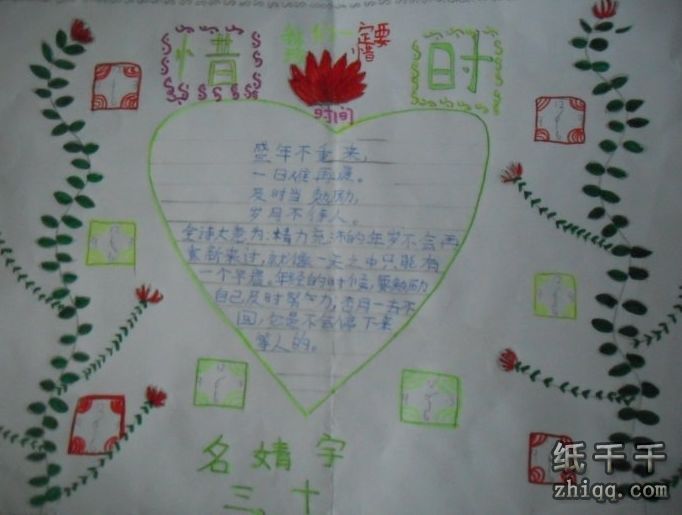 惜
我们一定要惜
时
时间
盛年不重来,
一日难再晨。
及时当勉励,
岁月不待人。
全诗大意为:精力充沛的年岁不会再
重新来过,就像一天之中只能有
一个早晨。年轻的时候,要勉励
自己及时努力,岁月一去不
回,它是不会停下来
等人的。
名婧字
三、十
纸千千
zhiqq.com